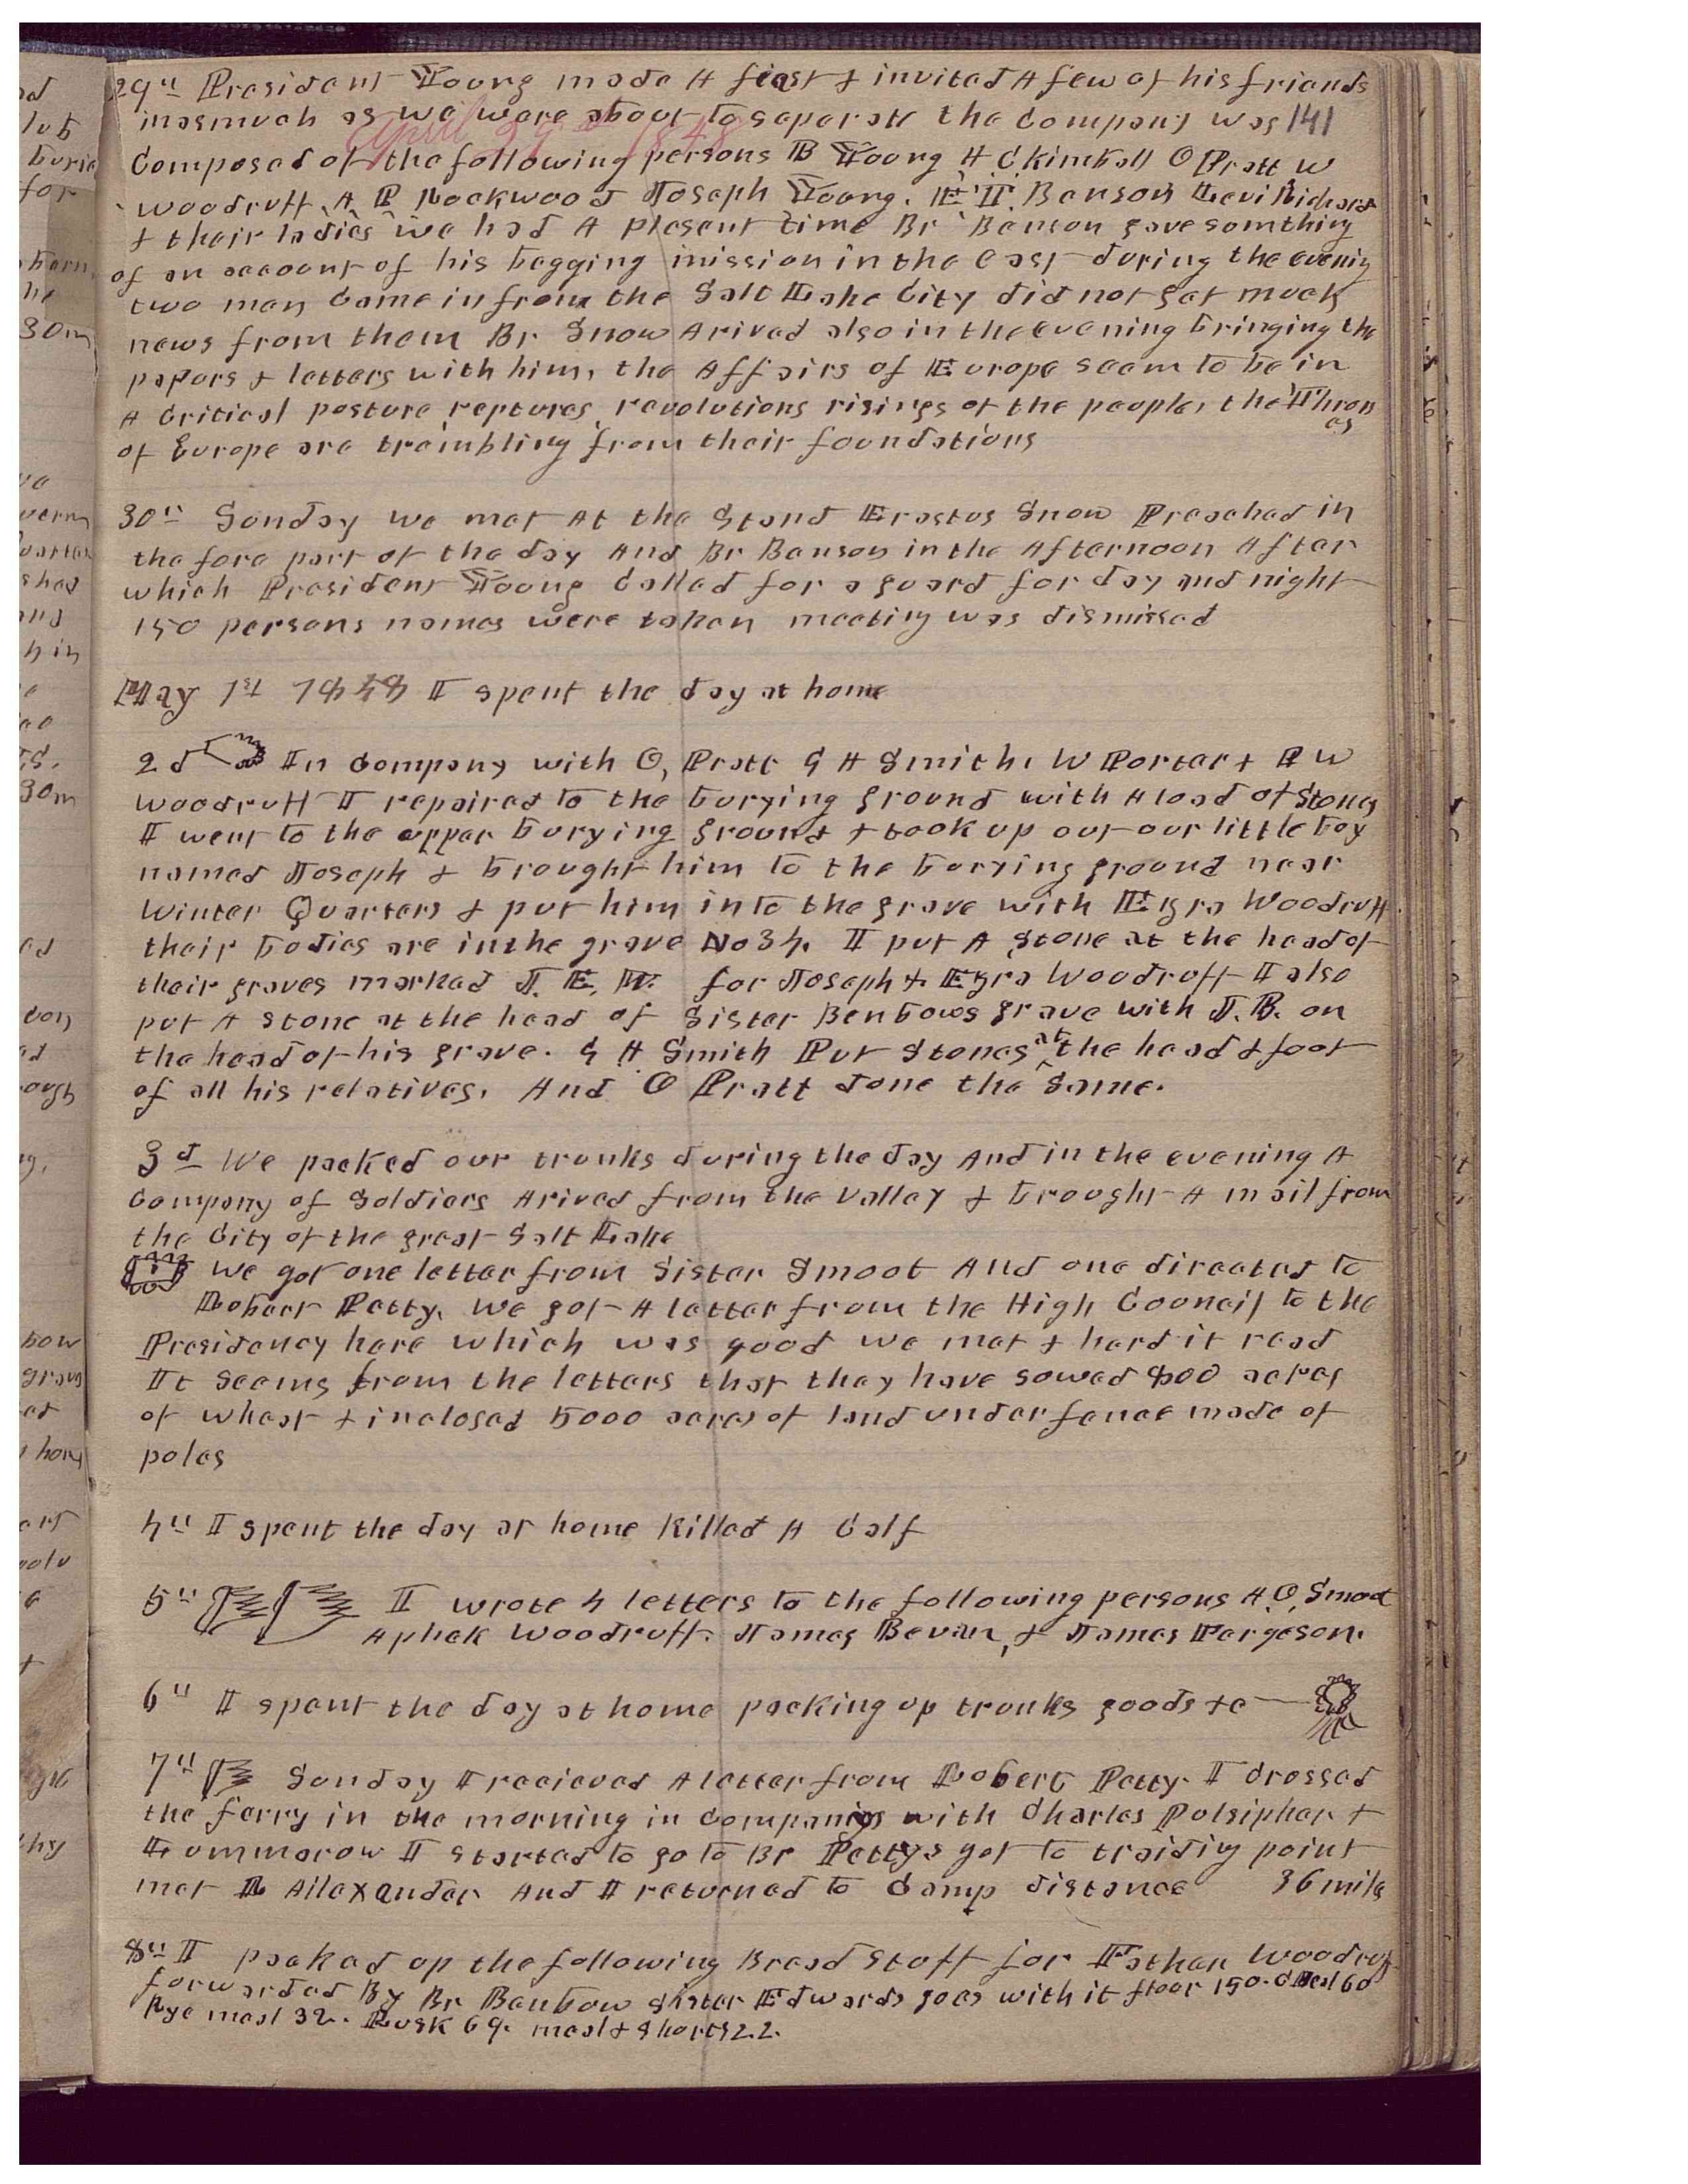 29th President Young made A feast & invited A few of his friends
inasmuch as we were about to seperate the Company was 141
April 29th 1848
Composed of the following persons B Young H C Kimball O Pratt W
Woodruff, A P Rockwood Joseph Young. E. T. Benson Levi Richards
& their ladies we had A plesent time Br Benson gave somthing
of an account of his begging mission in the east during the evenig
two men Came in from the Salt Lake City did not get much
news from them Br Snow Arived also in the evening bringing the
papers & letters with him, the Affairs of Europe seem to be in
A Critical posture reptures, revolutions risings of the people, the Thrones
of Europe are trembling from their foundations
30th Sunday we met At the Stand Erastus Snow Preached in
the fore part of the day And Br Benson in the Afternoon After
which President Young Called for a guard for day and night
150 persons names were taken meeting was dismissed
May 1st 1848 I spent the day at home
2d In Company with O, Pratt G A Smith, W Porter & P W
Woodruff I repaired to the burying ground with A load of Stones
I went to the upper burying ground & took up out our little boy
named Joseph & brought him to the burying ground near
Winter Quarters & put him into the grave with Ezra Woodruff.
their bodies are in the grave No 34. I put A stone at the head of
their graves marked J. E. W. for Joseph & Ezra Woodruff I also
put A stone at the head of Sister Benbows grave with J. B. on
the head of his grave. G A Smith Put Stones at the head & foot
of all his relatives, And O Pratt done the Same.
3d We packed our trunks during the day And in the evening A
Company of Soldiers Arived from the valley & brought A mail from
the City of the great Salt Lake
We got one letter from Sister Smoot And one directed to
Robert Petty. We got A letter from the High Council to the
Presidency here which was good we met & hard it read
It seems from the letters that they have sowed 800 acres
of wheat & inclosed 5000 acres of land under fence made of
poles
4th I spent the day at home killed A Calf
5th I wrote 4 letters to the following persons A, O, Smoot
Aphek Woodruff. James Bevan, & James Pargeson.
6th I spent the day at home packing up trunks goods &c
7th Sunday I recieved A letter from Robert Petty. I Crossed
the ferry in the morning in Company with Charles Pulsipher &
Lummarow I started to go to Br Pettys got to traidig point
met R Allexander And I returned to Camp distance 36 mile
8th I packed up the following Bread Stuff for Father Woodruff
forwarded By Br Benbow Sister Edwards goes with it flour 150. C Meal 60
Rye meal 32. Rusk 69. meal & shorts 22.